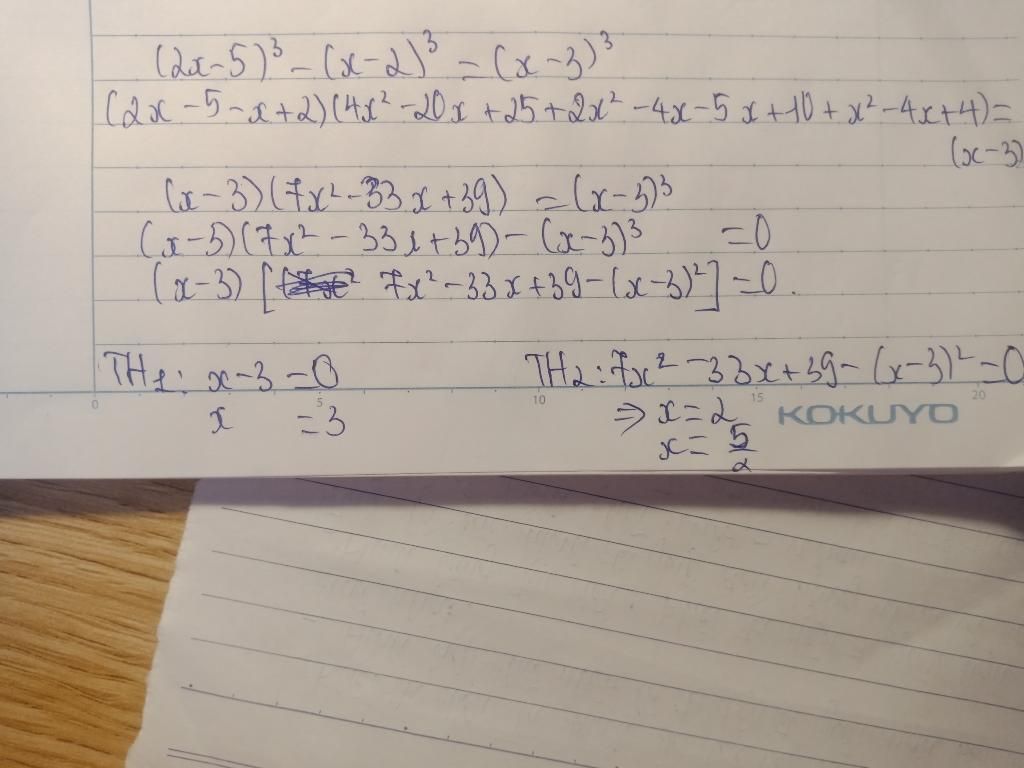 (2x-5)³ - (x-2)³ = (x-3)³
(2x-5-x+2)(4x²-20x+25+2x²-4x-5x+10+x²-4x+4)=
(x-3)
(x-3)(7x²-33x+39) = (x-3)³
(x-3)(7x²-33x+39) - (x-3)³ =0
(x-3)[ 7x²-33x+39-(x-3)²]=0.
TH1: x-3=0
x =3
TH2: 7x²-33x+39-(x-3)²=0
⇒ x=2
x= 5/2
0 5 10 15 20
KOKUYO